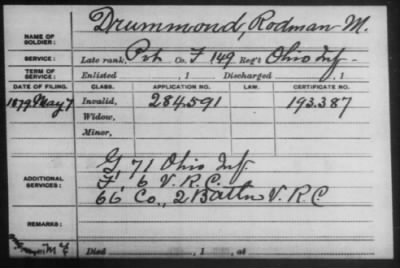 NAME OF SOLDIER: Drummond, Rodman M.
SERVICE: Late rank, Pvt Co. F 149 Reg't Ohio Inf.
TERM OF SERVICE: Enlisted , 1 Discharged , 1
DATE OF FILING. CLASS. APPLICATION NO. LAW. CERTIFICATE NO.
1879 May 7 Invalid, 284.591 193.387
Widow,
Minor,
ADDITIONAL SERVICES: G, 71 Ohio Inf.
F, 6 V.R.C.
66 Co., 2 Battn V.R.C
REMARKS:
Died , 1 , at